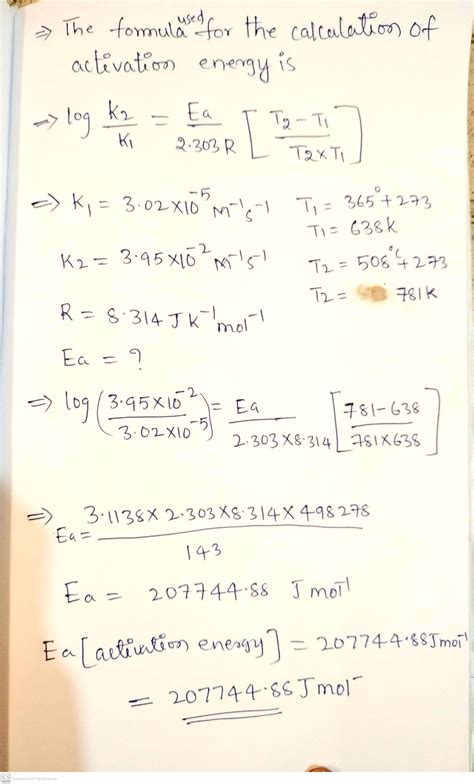 ⇒ The formula used for the calculation of
activation energy is
⇒ log K2/K1 = Ea/2.303 R [T2-T1/T2×T1]
⇒ K1 = 3.02×10^-5 M^-1 s^-1 T1 = 365°+273
T1 = 638k
K2 = 3.95×10^-2 M^-1 s^-1 T2 = 508°C+273
T2 = 781K
R = 8.314 J K^-1 mol^-1
Ea = ?
⇒ log (3.95×10^-2/3.02×10^-5) = Ea/2.303×8.314 [781-638/781×638]
⇒ Ea = 3.1138×2.303×8.314×498278/143
Ea = 207744.88 J mol^-1
Ea [activation energy] = 207744.88 J mol^-1
= 207744.88 J mol^-
Scanned with CamScanner